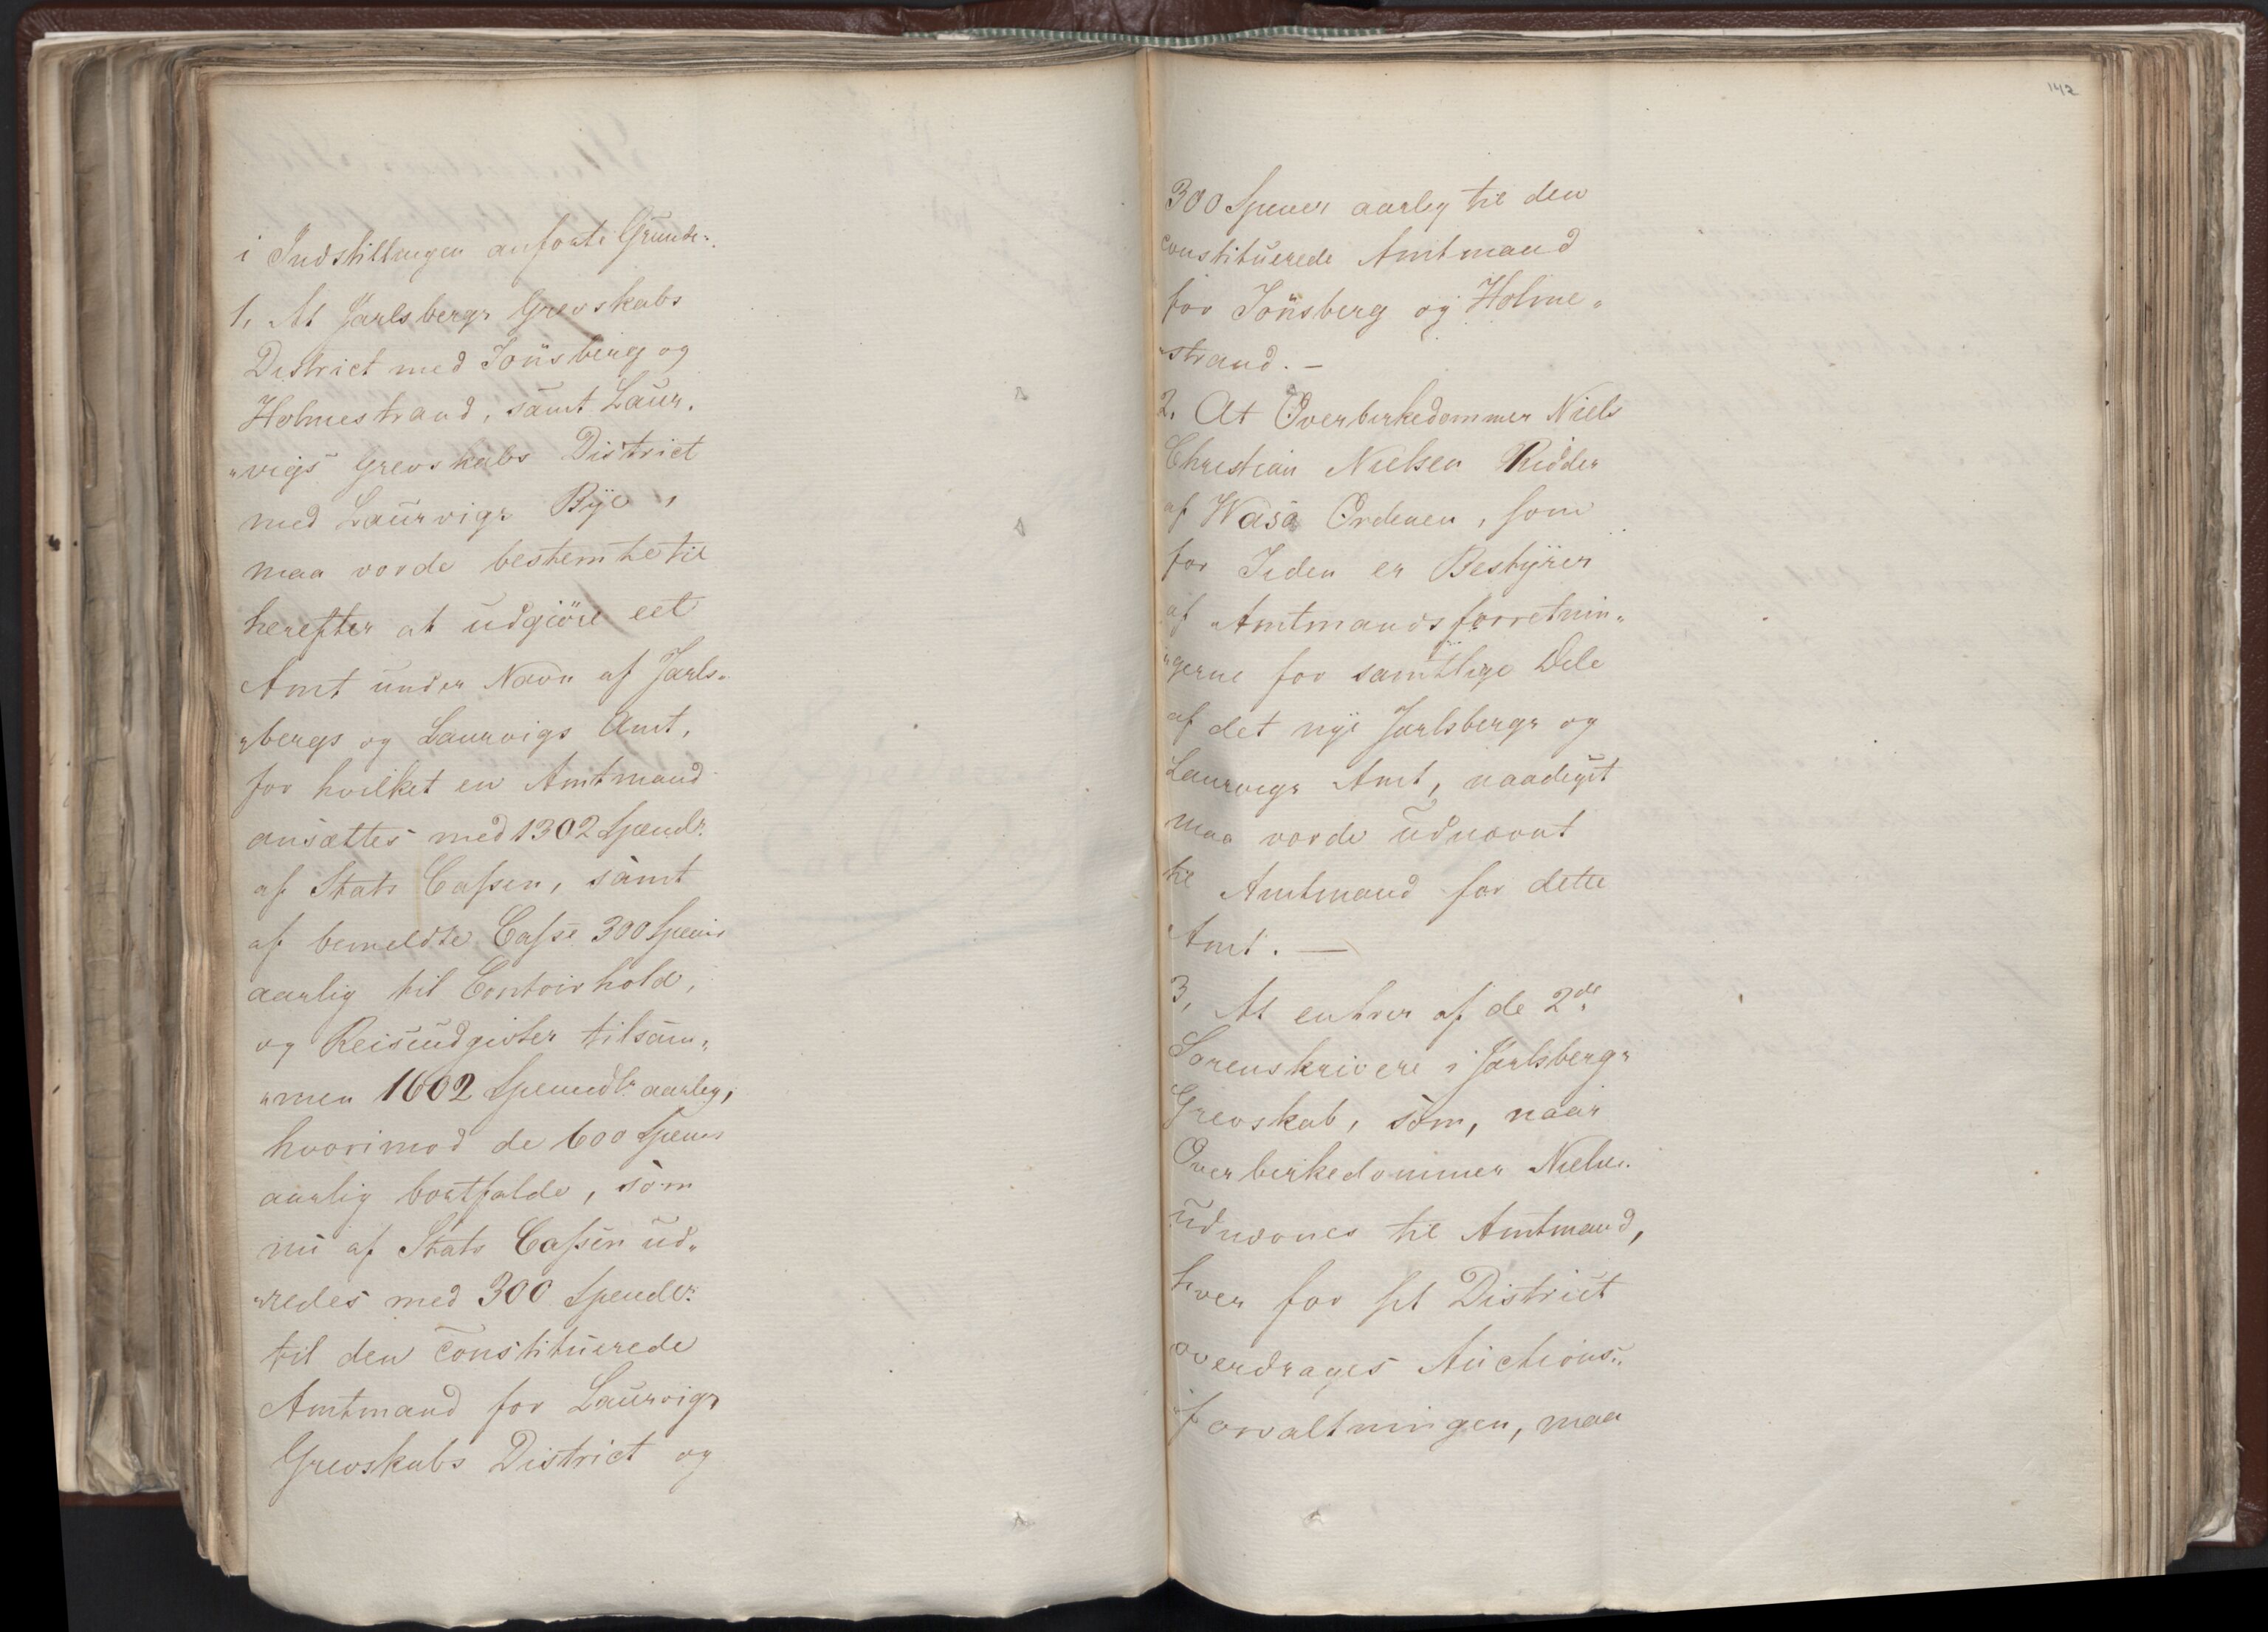 i Indstillingen anforte Grunde:
1. At Jarlsbergs Grevskabs
District med Tönsberg og
Holmestrand, samt Laur„
„vigs Grevskabs District
med Laurvigs Bye,
maa vorde bestemte til
herefter at udgiöre eet
Amt under Navn af Jarls„
„bergs og Laurvigs Amt,
for hvilket en Amtmand
ansættes med 1302 Specdlr.
af Stats Cassen, samt
af bemeldte Casse 300 Species
aarlig til Contoirhold,
og Reiseudgivter tilsam„
„men 1602 Speciesdlr aarlig,
hvorimod de 600 Species
aarlig bortfalde, som
nu af Stats Cassen ud„
„redes med 300 Specdlr.
til den constituerede
Amtmand for Laurvigs
Grevskabs District og
142
300 Species aarlig til den
constituerede Amtmand
for Tönsberg og Holme„
„strand. –
2. At Overbirkedommer Niels
Christian Nielsen Ridder
af Wasa Ordenen, som
for Tiden er Bestÿrer
af Amtmandsforretnin„
„gerne for samtlige Dele
af det nye Jarlsbergs og
Laurvigs Amt, naadigst
maa vorde udnævnt
til Amtmand for dette
Amt. —
3, At enhver af de 2de
Sorenskrivere i Jarlsbergs
Grevskab, som, naar
Overbirkedommer Nielsen
udnævnes til Amtmand,
hver for sit District
overdrages Auctions„
„forvaltningen, maa